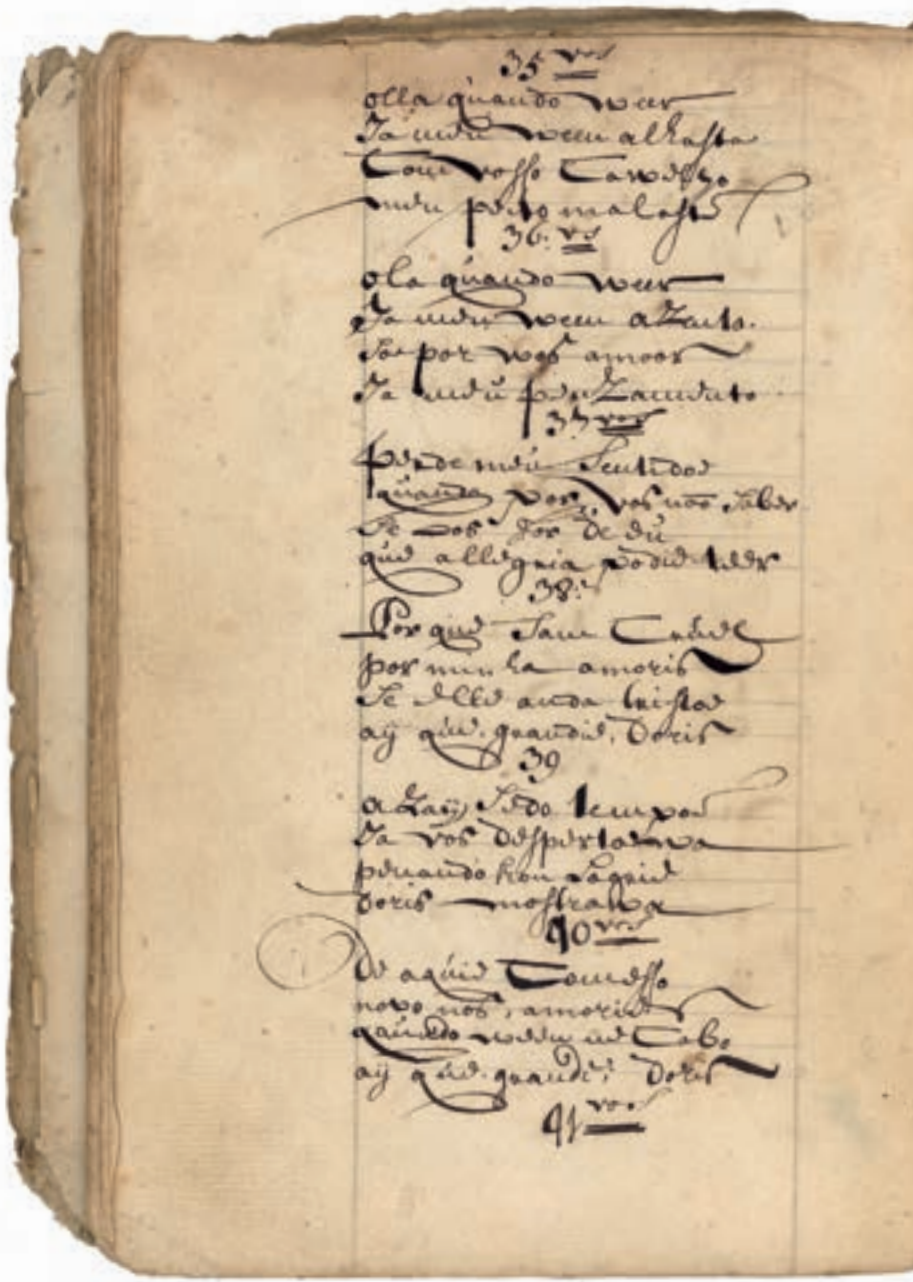 35 vos
olla quando weer
Ja meu weeu alkasta
Com vosso Cawelho
meu peito malasta
36: vs
ola quando weer
Ja meu weeu a Zento.
Ja por wos amoor
Ja meu penZamento
37 vos
perde meu Sentidos
quando por vos não Saber
Se pos for de eu
que allegria podie teer
38:
Por que Sam Cruel
por minha amoris
Se elle anda tristoe
ay que grandie, Doris
39
a Zay Sedo tempoe
Ja vos despertaewa
penando kon
Doris mostrawa
40 vos
de aquie Comesso
novo nos, amoris
quando weeu ne Cabo
ay que grandie, Doris
41 vos